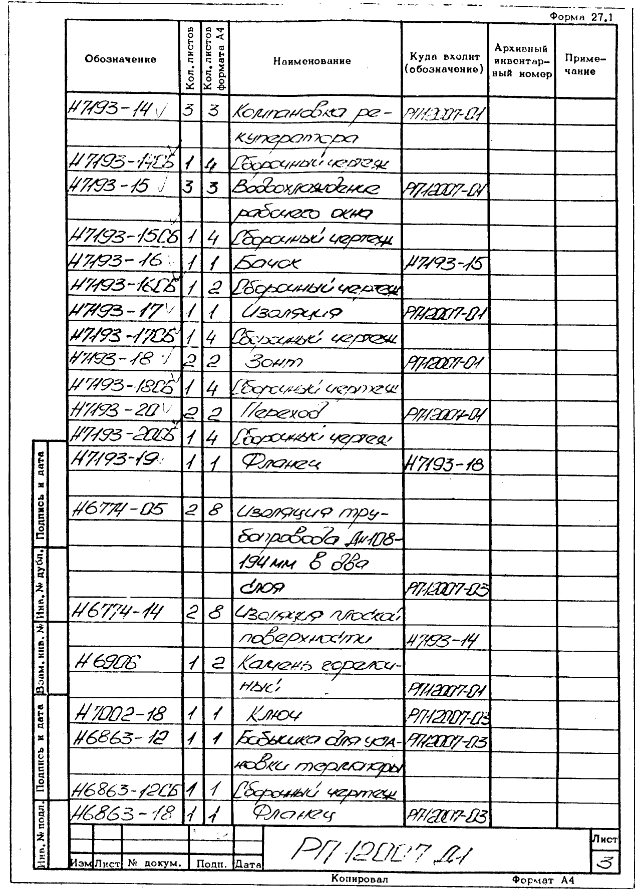 Форма 27.1
Обозначение Кол. листов Кол. листов формата А4 Наименование Куда входит (обозначение) Архивный инвентарный номер Примечание
Н7193-14 3 3 Компановка ре- РП12007-01
куператора
Н7193-14СБ 1 4 Сборочный чертеж
Н7193-15 3 3 Водоохлаждение РП12007-01
рабочего окна
Н7193-15СБ 1 4 Сборочный чертеж
Н7193-16 1 1 Бачок Н7193-15
Н7193-16СБ 1 2 Сборочный чертеж
Н7193-17 1 1 Изоляция РП12007-01
Н7193-17СБ 1 4 Сборочный чертеж
Н7193-18 2 2 Зонт РП12007-01
Н7193-18СБ 1 4 Сборочный чертеж
Н7193-20 2 2 Переход РП12007-01
Н7193-20СБ 1 4 Сборочный чертеж
Н7193-19 1 1 Фланец Н7193-18
Н6774-05 2 8 Изоляция тру-
бопровода Дн108-
194мм в два
слоя РП12007-03
Н6774-14 2 8 Изоляция плоской
поверхности Н7193-14
Н6906 1 2 Камень горелоч-
ный РП12007-01
Н7002-18 1 1 Ключ РП12007-03
Н6863-12 1 1 Бобышка для уста- РП12007-03
новки термопары
Н6863-12СБ 1 1 Сборочный чертеж
Н6863-18 1 1 Фланец РП12007-03
Инв. № подл. Подпись и дата Взам. инв. № Инв. № дубл. Подпись и дата
РП12007 Д1
Лист
3
Изм Лист № докум. Подп. Дата
Копировал Формат А4